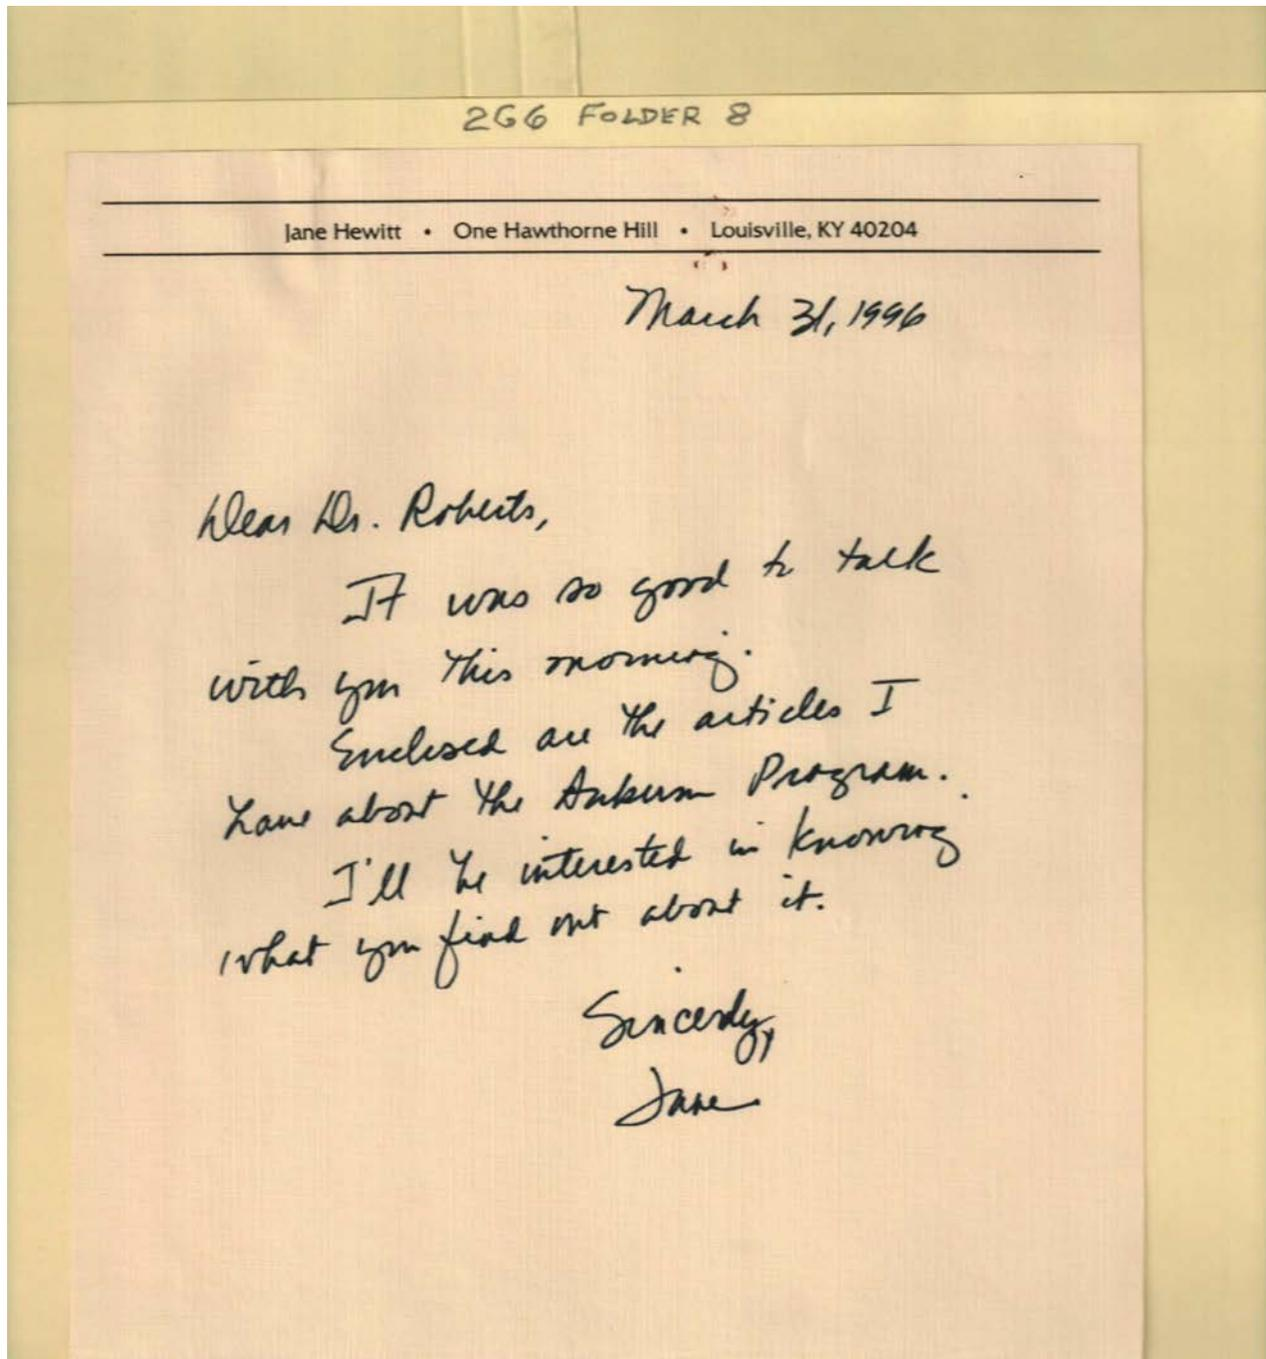 2G6 FOLDER 8
Jane Hewitt • One Hawthorne Hill • Louisville, KY 40204
March 31, 1996
Dear Dr. Roberts,
It was so good to talk
with you this morning.
Enclosed are the articles I
have about the Auburn Program.
I'll be interested in knowing
what you find out about it.
Sincerely,
Jane